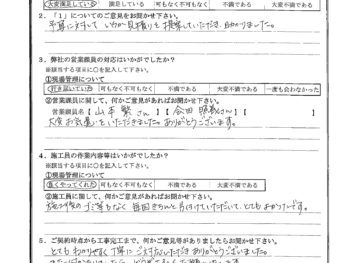 大変満足している　満足している　可も不可もなく　不満である　大変不満である
2. 「1」についてのご意見をお聞かせ下さい。
予算に対して いい 見積りを提案していただき、助かりました。
3. 弊社の営業職員の対応はいかがでしたか？
※該当する項目に○を記入して下さい。
①現場管理について
行き届いている　可もなく不可もなく　不満である　大変不満である　一度も会わなかった
②営業職員に関して、何かご意見があればお聞かせ下さい。
営業職員【 山本 さん 】【 合田 さん】
大変お気遣いをいただきました。ありがとうございます。
4. 施工員の作業内容等はいかがでしたか？
※該当する項目に○を記入して下さい。
①現場管理について
良くやってくれた　可もなく不可もなく　不満である　大変不満である
②施工員に関して、何かご意見があればお聞かせ下さい。
施工後のゴミ等もなく 毎回きちんと片付けていただいて、とてもよかったです。
5. ご契約時点から工事完工まで、何かご意見等がありましたらお聞かせ下さい。
とてもわかりやすく丁寧にご対応いただきありがとうございました。